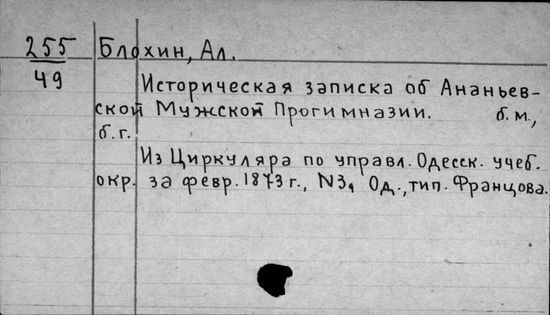 255 Блохин, Ал.
49
Историческая записка об Ананьев-
ской Мужской Прогимназии. б.м.,
б.г.
Из Циркуляра по управл. Одесск. учеб.
окр. за февр. 1873 г., N3, Од., тип. Францова.